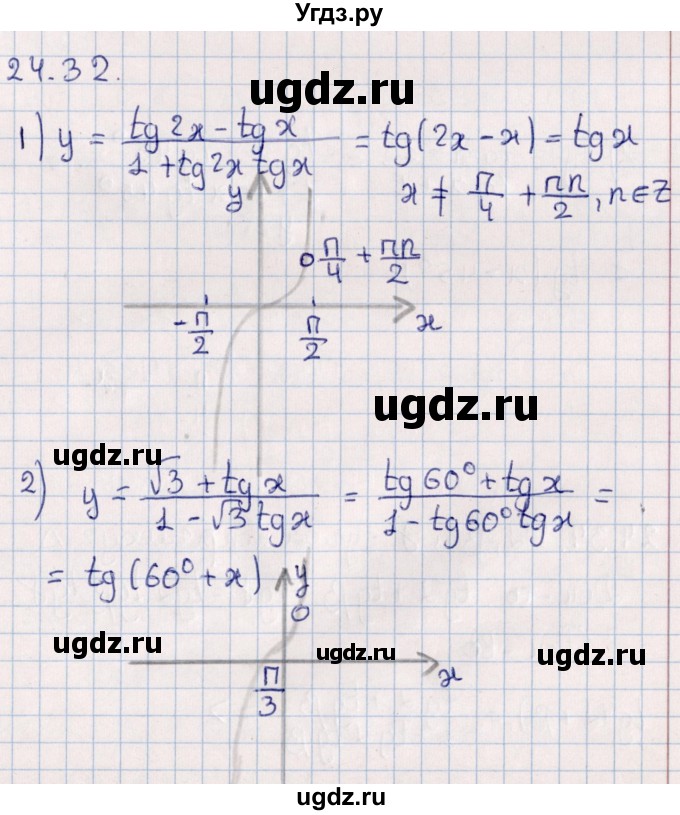 Угдз.ру
24.32.
ugdz.ru
1) y = (tg 2x - tg x)/(1 + tg 2x tg x) = tg(2x - x) = tg x
y x ≠ π/4 + πn/2, n ∈ Z
π/4 + πn/2
-π/2 π/2 x
ugdz.ru
ugdz.ru
2) y = (√3 + tg x)/(1 - √3 tg x) = (tg 60° + tg x)/(1 - tg 60° tg x) =
= tg (60° + x) y
ugdz.ru ugdz.ru ugdz.ru
π/3 x
ugdz.ru